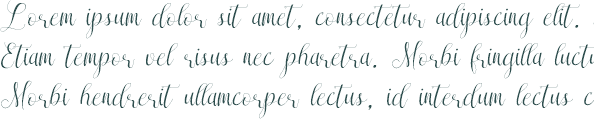 Lorem ipsum dolor sit amet, consectetur adipiscing elit.
Etiam tempor vel risus nec pharetra. Morbi fringilla luctu
Morbi hendrerit ullamcorper lectus, id interdum lectus c